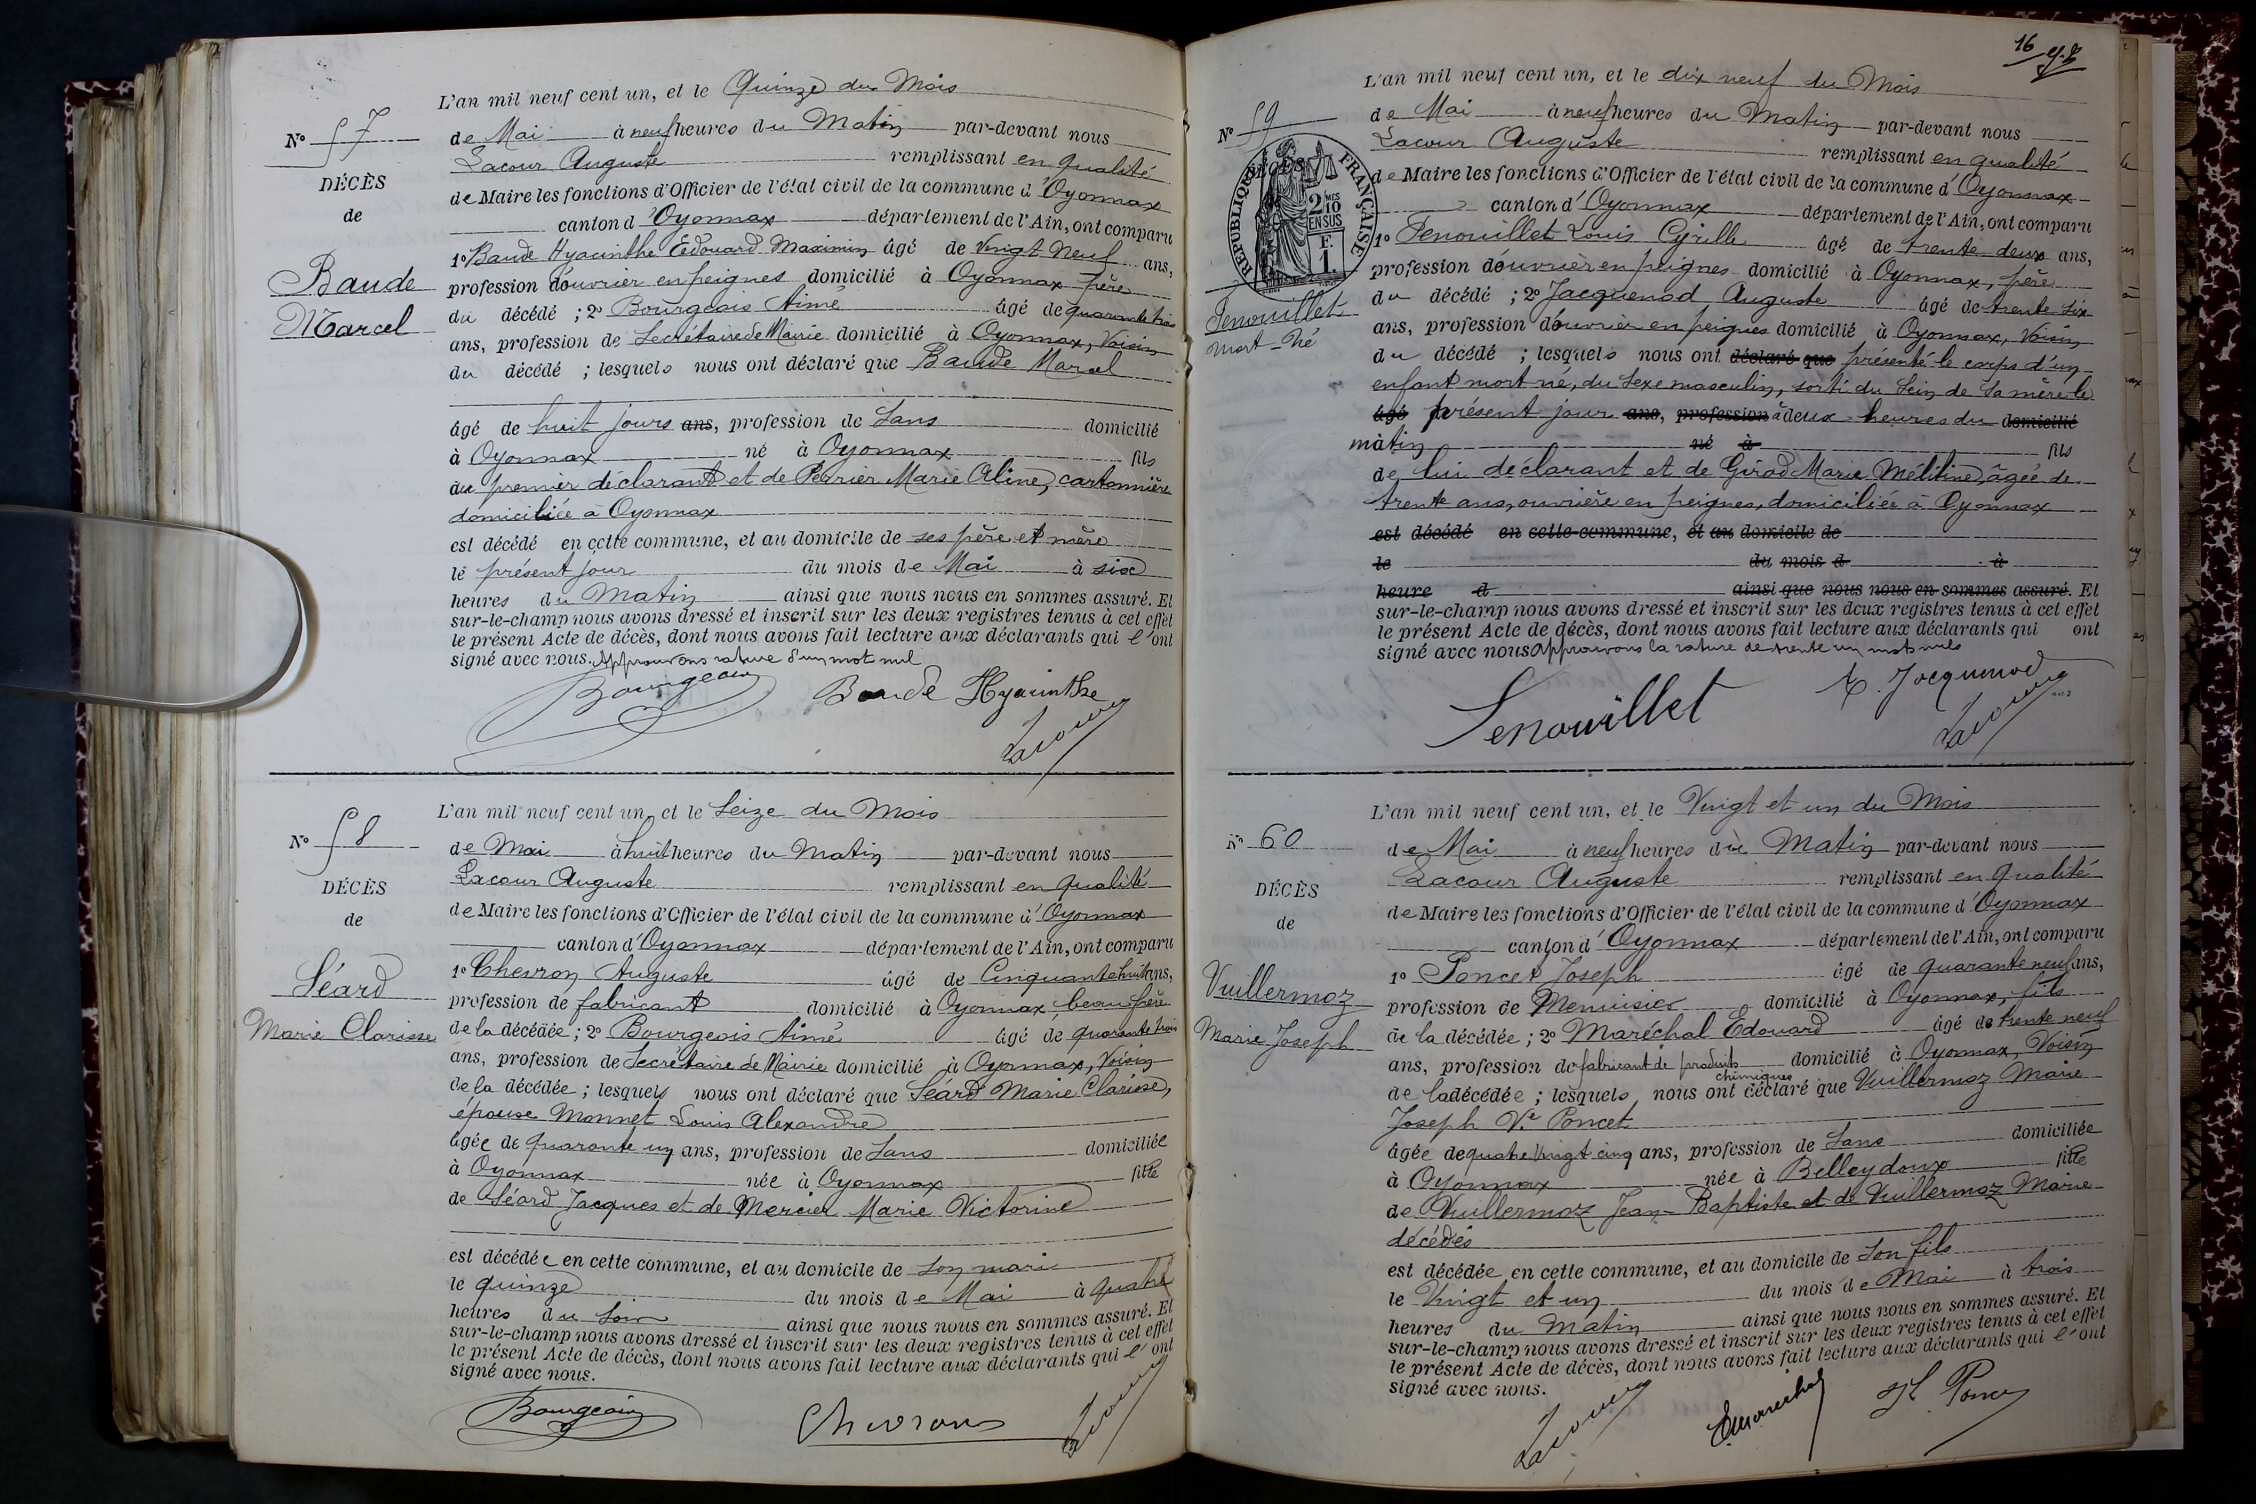 L'an mil neuf cent un, et le Quinze du Mois
No 57
de Mai à neuf heures du Matin par-devant nous
Lacour Auguste remplissant en qualité
DÉCÈS
de Maire les fonctions d'Officier de l'état civil de la commune d'Oyonnax
de
canton d'Oyonnax département de l'Ain, ont comparu
1o Baude Hyacinthe Edouard Maximin âgé de Vingt Neuf ans,
Baude
profession d'ouvrier en peignes domicilié à Oyonnax père
du décédé ; 2o Bourgeois Aimé âgé de quarante trois
Marcel
ans, profession de Secrétaire de Mairie domicilié à Oyonnax, Voisin
du décédé ; lesquels nous ont déclaré que Baude Marcel
âgé de huit jours ans, profession de Sans domicilié
à Oyonnax né à Oyonnax fils
du premier déclarant et de Perrier Marie Aline, cartonnière
domiciliée à Oyonnax
est décédé en cette commune, et au domicile de ses père et mère
le présent jour du mois de Mai à six
heures du Matin ainsi que nous nous en sommes assuré. Et
sur-le-champ nous avons dressé et inscrit sur les deux registres tenus à cet effet
le présent Acte de décès, dont nous avons fait lecture aux déclarants qui l'ont
signé avec nous. Approuvons rature d'un mot nul
Bourgeois Baude Hyacinthe
Lacour
L'an mil neuf cent un, et le Seize du Mois
No 58
de Mai à huit heures du Matin par-devant nous
Lacour Auguste remplissant en qualité
DÉCÈS
de Maire les fonctions d'Officier de l'état civil de la commune d'Oyonnax
de
canton d'Oyonnax département de l'Ain, ont comparu
1o Chevron Auguste âgé de Cinquante huit ans,
Séard
profession de fabricant domicilié à Oyonnax, beau frère
Marie Clarisse
de la décédée ; 2o Bourgeois Aimé âgé de quarante trois
ans, profession de Secrétaire de Mairie domicilié à Oyonnax, Voisin
de la décédée ; lesquels nous ont déclaré que Séard Marie Clarisse,
épouse Monnet Louis Alexandre
âgée de quarante un ans, profession de Sans domiciliée
à Oyonnax née à Oyonnax fille
de Séard Jacques et de Mercier Marie Victorine
est décédée en cette commune, et au domicile de son mari
le quinze du mois de Mai à quatre
heures du Soir ainsi que nous nous en sommes assuré. Et
sur-le-champ nous avons dressé et inscrit sur les deux registres tenus à cet effet
le présent Acte de décès, dont nous avons fait lecture aux déclarants qui l'ont
signé avec nous.
Bourgeois Chevron Lacour
16
L'an mil neuf cent un, et le dix neuf du Mois
No 59
de Mai à neuf heures du Matin par-devant nous
Lacour Auguste remplissant en qualité
DÉCÈS
RÉPUBLIQUE FRANÇAISE
2 MES 10 EN SUS
F. 1
de Maire les fonctions d'Officier de l'état civil de la commune d'Oyonnax
canton d'Oyonnax département de l'Ain, ont comparu
1o Fenouillet Louis Cyrille âgé de trente deux ans,
profession d'ouvrier en peignes domicilié à Oyonnax, père
Fenouillet
du décédé ; 2o Jacquenod Auguste âgé de trente six
Mort-Né
ans, profession d'ouvrier en peignes domicilié à Oyonnax, Voisin
du décédé ; lesquels nous ont déclaré que présenté le corps d'un
enfant mort né, du Sexe masculin, sorti du Sein de Sa mère le
âgé présent jour ans, profession à deux heures du domicilié
matin né à fils
de lui déclarant et de Girod Marie Mélitine, âgée de
trente ans, ouvrière en peignes, domiciliée à Oyonnax
est décédé en cette commune, et au domicile de
le du mois d à
heure d ainsi que nous nous en sommes assuré. Et
sur-le-champ nous avons dressé et inscrit sur les deux registres tenus à cet effet
le présent Acte de décès, dont nous avons fait lecture aux déclarants qui ont
signé avec nous Approuvons la rature de trente un mots nuls
Fenouillet A. Jacquenod
Lacour
L'an mil neuf cent un, et le Vingt et un du Mois
No 60
de Mai à neuf heures du Matin par-devant nous
Lacour Auguste remplissant en qualité
DÉCÈS
de Maire les fonctions d'Officier de l'état civil de la commune d'Oyonnax
de
canton d'Oyonnax département de l'Ain, ont comparu
1o Poncet Joseph âgé de quarante neuf ans,
Vuillermoz
profession de Menuisier domicilié à Oyonnax, fils
Marie Joseph
de la décédée ; 2o Maréchal Edouard âgé de trente neuf
ans, profession de fabricant de produits chimiques domicilié à Oyonnax, Voisin
de la décédée ; lesquels nous ont déclaré que Vuillermoz Marie
Joseph Ve Poncet
âgée de quatre Vingt cinq ans, profession de Sans domiciliée
à Oyonnax née à Belleydoux fille
de Vuillermoz Jean-Baptiste et de Vuillermoz Marie
décédés
est décédée en cette commune, et au domicile de Son fils
le Vingt et un du mois de Mai à trois
heures du Matin ainsi que nous nous en sommes assuré. Et
sur-le-champ nous avons dressé et inscrit sur les deux registres tenus à cet effet
le présent Acte de décès, dont nous avons fait lecture aux déclarants qui l'ont
signé avec nous.
Lacour E Marechal Poncet